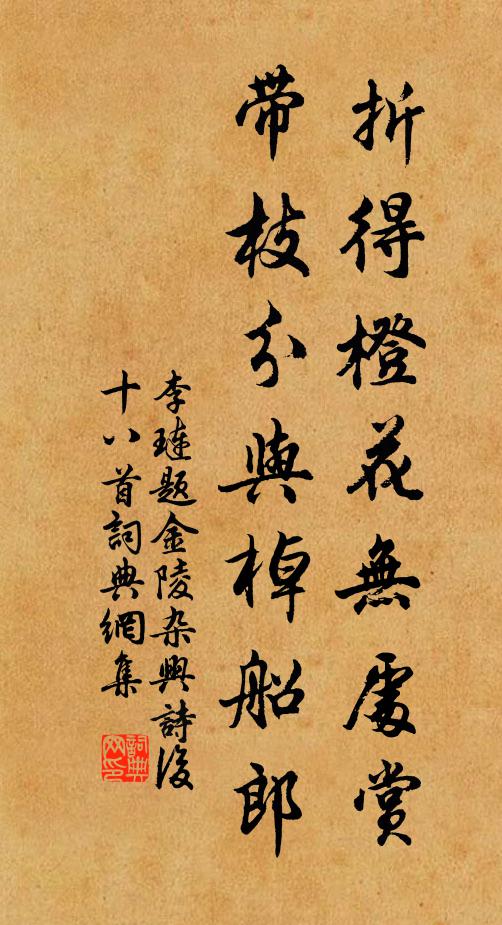 折得橙花無處賞
带枝分與棹船郎
李璉题金陵杂興詩後
十八首詞典網集
詞典
网印